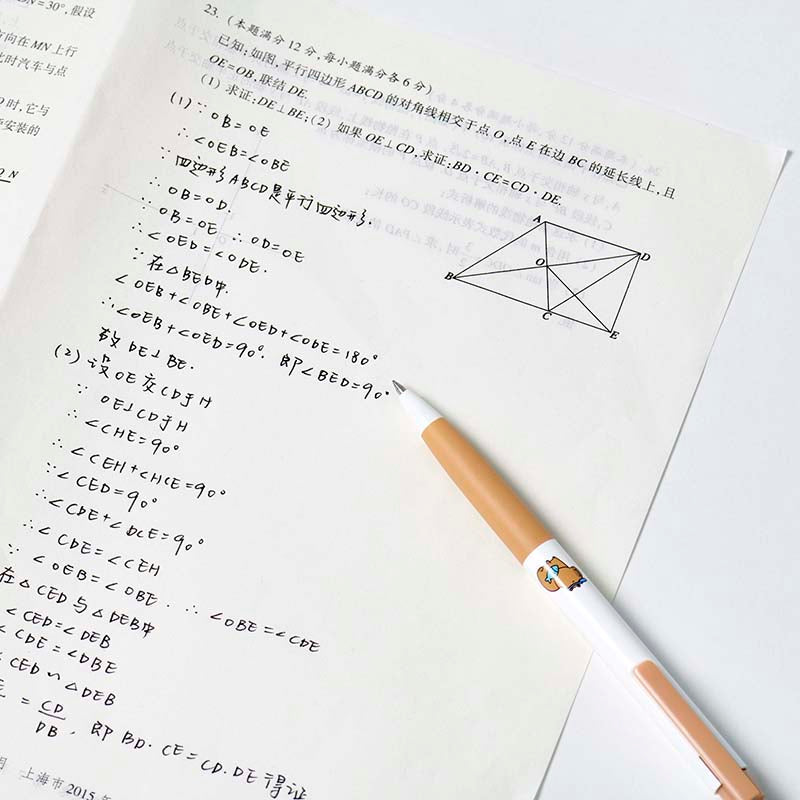 N=30°,假设
方向在MN上行
此时汽车与点
时,它与
安装的
23.(本题满分12分,每小题满分各6分)
已知:如图,平行四边形ABCD的对角线相交于点O,点E在边BC的延长线上,且
OE=OB,联结DE.
(1)求证:DE⊥BE;(2)如果OE⊥CD,求证:BD·CE=CD·DE.
(1)∵OB=OE
∴∠OEB=∠OBE
∵四边形ABCD是平行四边形.
∴OB=OD.
∵OB=OE ∴OD=OE
∴∠OED=∠ODE.
∵在△BED中.
∠OEB+∠OBE+∠OED+∠ODE=180°
∴∠OEB+∠OED=90°.即∠BED=90°.
故DE⊥BE.
(2)设OE交CD于H
∵OE⊥CD于H
∴∠CHE=90°
∴∠CEH+∠HCE=90°
∵∠CED=90°
∴∠CDE+∠DCE=90°
∴∠CDE=∠CEH
∵∠OEB=∠OBE.∴∠OBE=∠CDE
在△CED与△DEB中
∠CED=∠DEB
∠CDE=∠DBE
CED∽△DEB
=CD/DB,即BD·CE=CD·DE得证
A
B
C
D
E
O
上海市2015